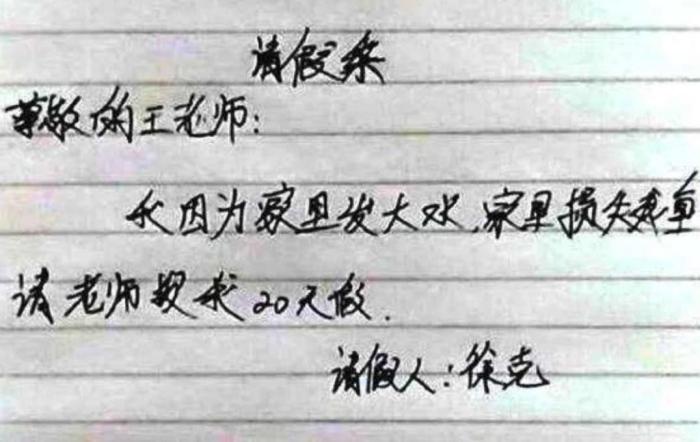 请假条
尊敬的王老师:
我因为家里发大水,家里损失惨重
请老师授我20天假.
请假人:徐克